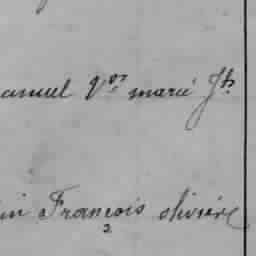 anuel Vor marié Jh
in François olivière
2